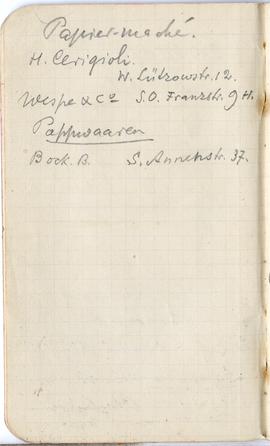 Papier-maché.
H. Cerigioli.
W. Lützowstr. 12.
Wespe & Co S.O. Franzstr. 9 H.
Pappwaaren
Bock. B. S. Annenstr. 37.